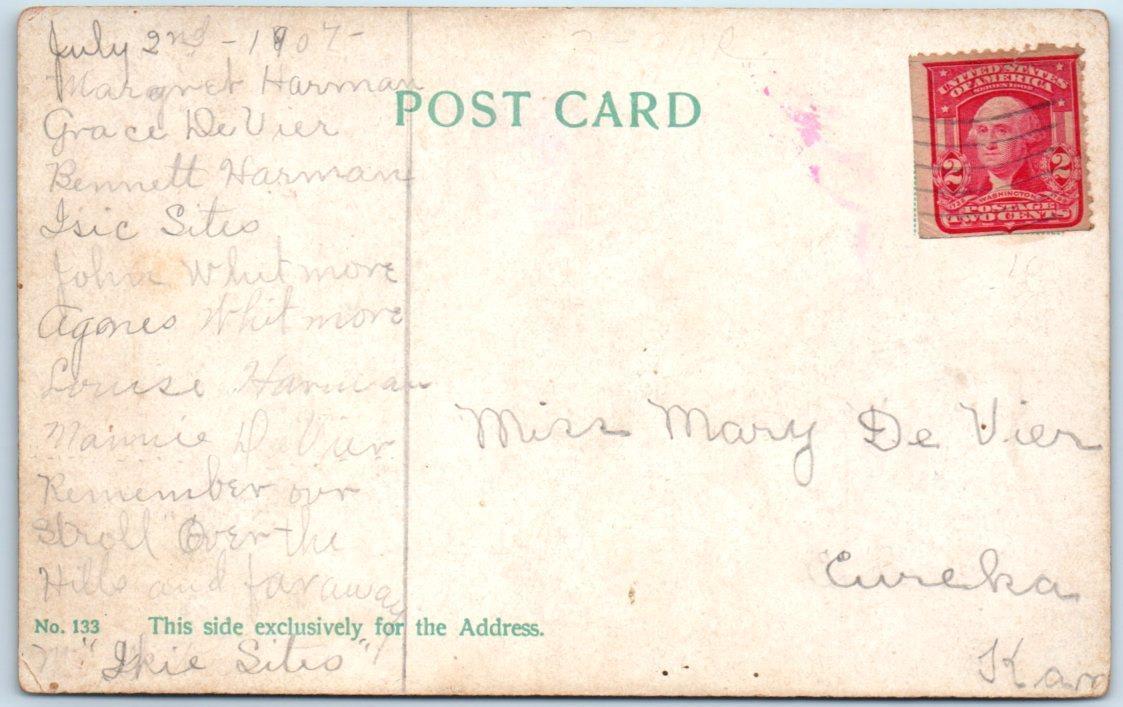 July 2nd - 1907 -
Margret Harman
Grace De Vier
Bennett Harman
Isic Sites
John Whitmore
Agones Whitmore
Louise Harman
Mannie De Vier
Remember our
stroll "Over the
Hills and far away
"Ikie Sites"
POST CARD
UNITED STATES
OF AMERICA
SERIES 1902
2 2
1732 WASHINGTON 1799
POSTAGE
TWO CENTS
Miss Mary De Vier
Eureka
Kan
No. 133 This side exclusively for the Address.